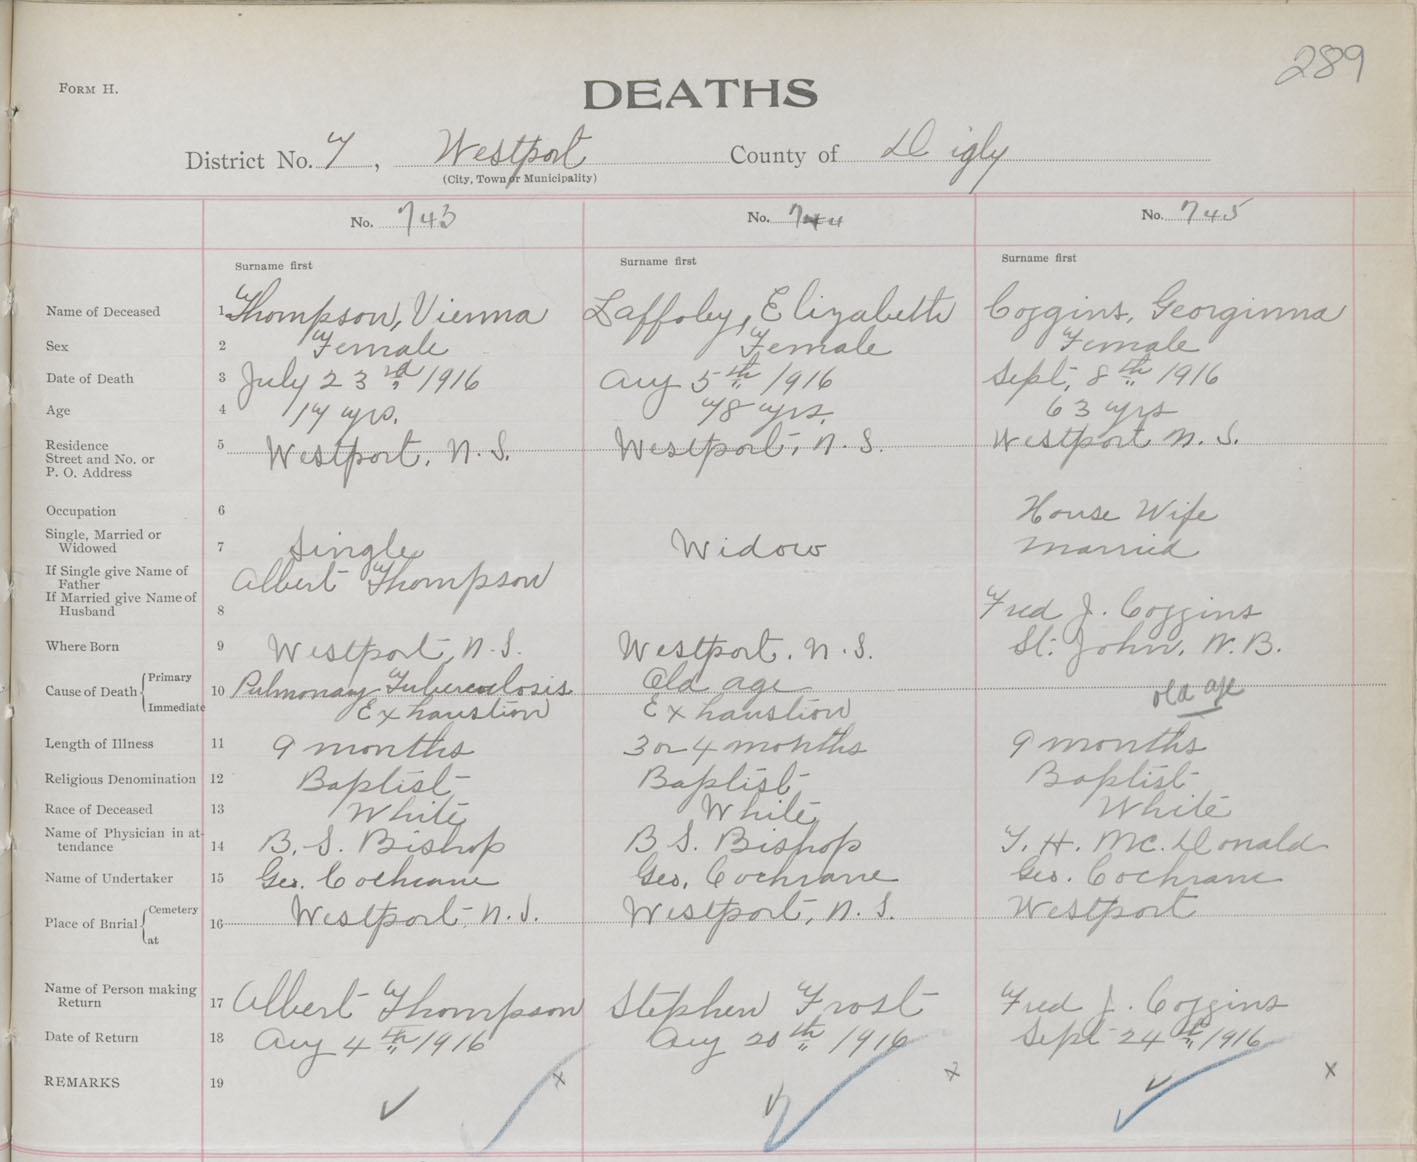 289
FORM H.
DEATHS
District No. 7, Westport County of Digby
(City, Town or Municipality)
No. 743 No. 744 No. 745
Surname first Surname first Surname first
Name of Deceased 1 Thompson, Vienna Laffoley, Elizabeth Coggins, Georginna
Sex 2 Female Female Female
Date of Death 3 July 23rd 1916 Aug 5th 1916 Sept, 8th 1916
Age 4 17 yrs. 78 yrs. 63 yrs
Residence 5 Westport, N.S. Westport, N.S. Westport N.S.
Street and No. or
P. O. Address
Occupation 6 House Wife
Single, Married or
Widowed 7 Single Widow Married
If Single give Name of
Father Albert Thompson
If Married give Name of
Husband 8 Fred J. Coggins
Where Born 9 Westport, N.S. Westport, N.S. St. John, N.B.
Cause of Death Primary 10 Pulmonary Tuberculosis Old age old age
Immediate Exhaustion Exhaustion
Length of Illness 11 9 months 3 or 4 months 9 months
Religious Denomination 12 Baptist Baptist Baptist
Race of Deceased 13 White White White
Name of Physician in at-
tendance 14 B. S. Bishop B S. Bishop T. H. McDonald
Name of Undertaker 15 Geo. Cochrane Geo. Cochrane Geo. Cochrane
Place of Burial Cemetery at 16 Westport, N.S. Westport, N.S. Westport
Name of Person making
Return 17 Albert Thompson Stephen Frost Fred J. Coggins
Date of Return 18 Aug 4th 1916 Aug 20th 1916 Sept 24th 1916
REMARKS 19 x x x